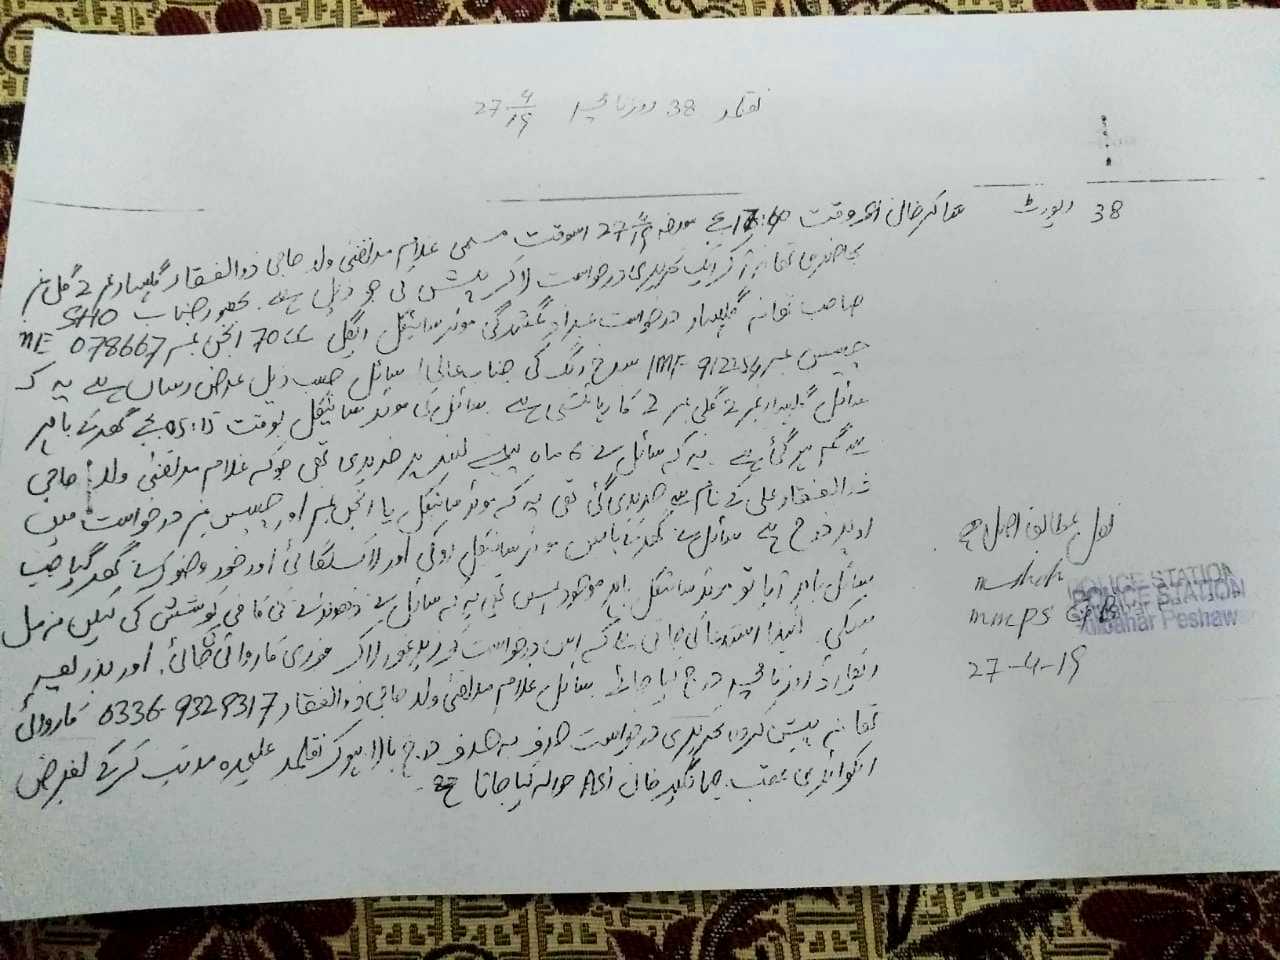 نقلمد 38 روزنامچہ 27/4/19
38 رپورٹ شاکر خان بوقت 17:40 بجے مورخہ 27/4/19 اسوقت مسمی غلام مرتضیٰ ولد حاجی ذوالفقار گلبہار نمبر 2 گلی نمبر
حاضر تھانہ آکر ایک تحریری درخواست لاکر پیش کی جو ذیل ہے۔ بحضور جناب SHO
صاحب تھانہ گلبہار درخواست بمراد گمشدگی موٹر سائیکل ایگل 70 انجن نمبر 078667 ME
چیسس نمبر MF 912254 سرخ رنگ کی جناب عالی! سائل حسب ذیل عرض رساں ہے یہ کہ
سائل گلبہار نمبر 2 گلی نمبر 2 کا رہائشی ہے سائل کی موٹر سائیکل بوقت 05:15 بجے گھر کے باہر
سے گم ہو گئی ہے۔ یہ کہ سائل نے 6 ماہ پہلے خریدی تھی جو کہ غلام مرتضیٰ ولد حاجی
ذوالفقار علی کے نام سے خریدی گئی تھی یہ کہ موٹر سائیکل یا انجن نمبر اور چیسس نمبر درخواست میں
اوپر درج ہے سائل نے گھر کے پاس موٹر سائیکل روکی اور لاک لگائی اور خود وضو کرنے گھر گیا جب
سائل باہر آیا تو موٹر سائیکل باہر موجود نہیں تھی یہ کہ سائل نے ڈھونڈنے کی کافی کوشش کی لیکن نہ مل
سکی۔ لہذا استدعا کی جاتی ہے کہ اس درخواست کو زیر غور لاکر فوری کاروائی کی جائے۔ اور بذریعہ
روزنامچہ درج کیا جائے سائل غلام مرتضیٰ ولد حاجی ذوالفقار 0336-9329317 کاروائی
تھانہ پیش کردہ تحریری درخواست حرف بہ حرف درج بالا ہو کر نقلمد علیحدہ مرتب کرکے بغرض
انکوائری عقب جہانگیر خان ASI حوالہ کیا جاتا ہے
نقل بمطابق اصل ہے
MMPS GPB
27-4-19
POLICE STATION
POLICE STATION
Gulbahar Peshawar